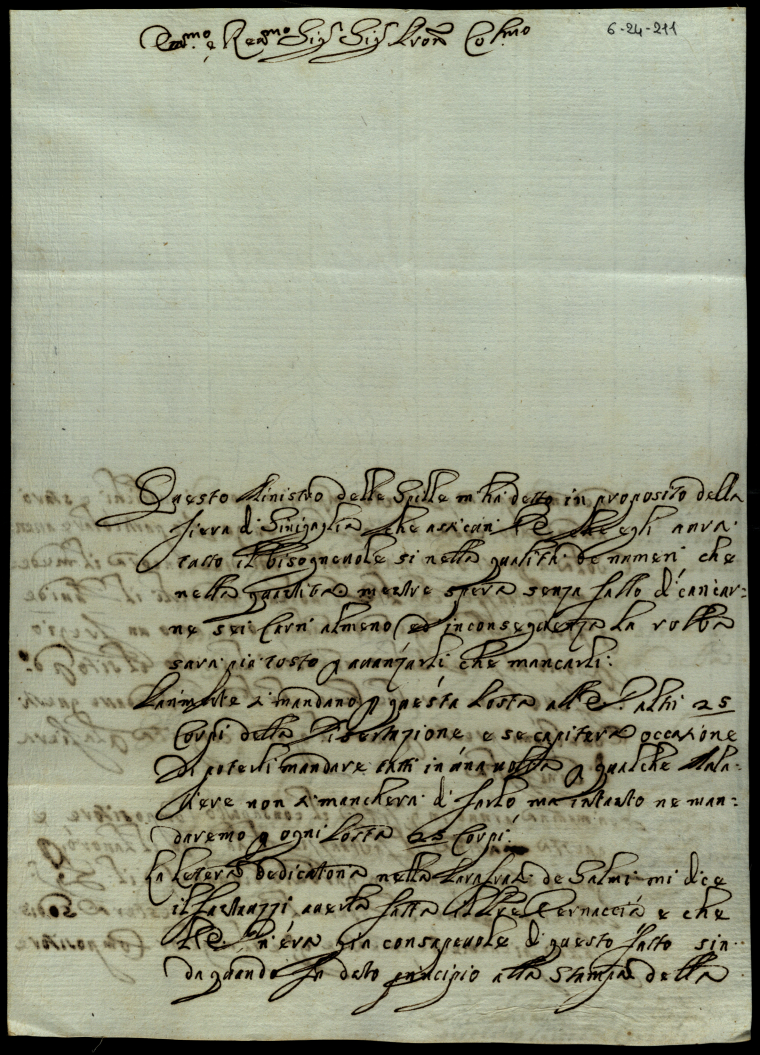 Rev.mo e Rev.mo Sig.r Sig.r Pron Col.mo
6-24-211
Questo Ministro delle Spille m ha detto in proposito della
fiera di Sinigaglia che assicuri che egli avra
tutto il bisogneuole si nella qualità de nameri che
nella quantita mentre spera senza fallo di caricar-
ne sei Carri almeno ed inconseguenza la robba
sara piu tosto p auanzarli che mancarli.
Parimente si mandano p questa Posta altri 25
Corpi della Disertazione e se capiterà occasione
di poterli mandare tutti in una uolta p qualche
non si mancherà di farlo ma intanto ne man-
daremo p ogni Posta 25 Corpi
La letera dedicatoria nella Parafrasi de Salmi mi dice
il auerla fatta il Pre Vernaccia e che
n'èra gia consapeuole di questo fatto sin
da quando fu dato principio alla stampa della